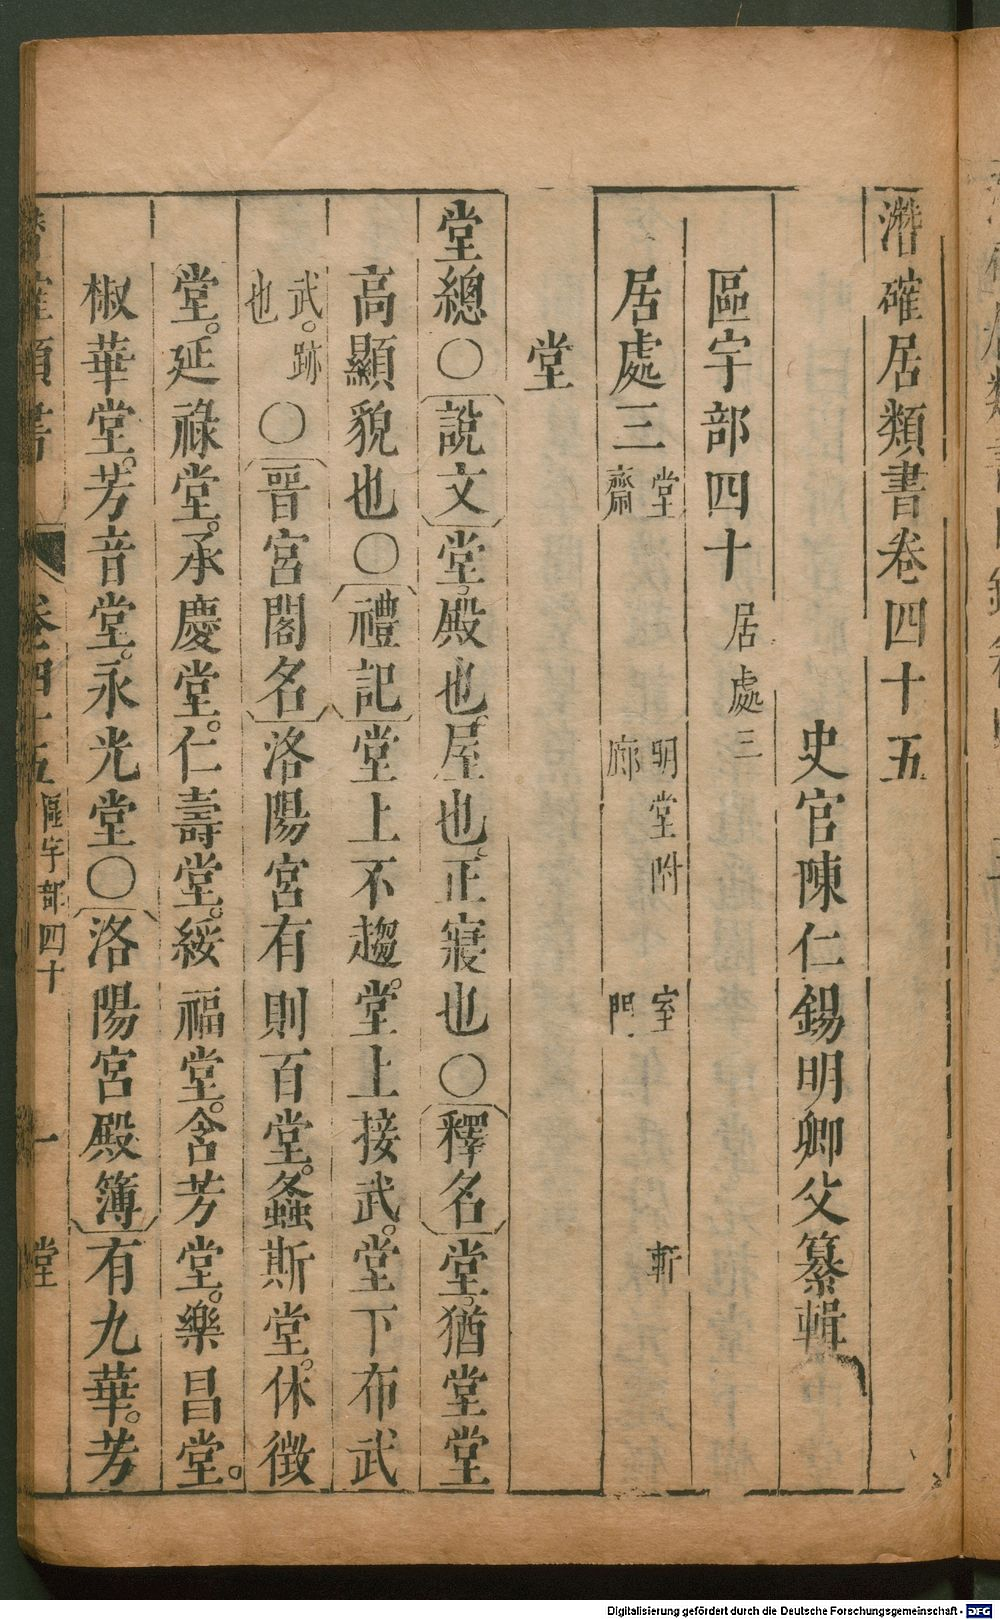 潛確居類書卷四十五
史官陳仁錫明卿父纂輯
區宇部四十 居處三
居處三 堂 明堂附 室 軒
齋 廊 門
堂
堂總〇〔說文〕堂。殿也。屋也。正寢也〇〔釋名〕堂。猶堂堂
高顯貌也〇〔禮記〕堂上不趨。堂上接武。堂下布武
武。跡
也
〇〔晉宮閣名〕洛陽宮有則百堂。螽斯堂。休徵
堂。延祿堂。承慶堂。仁壽堂。綏福堂。含芳堂。樂昌堂。
椒華堂。芳音堂。永光堂〇〔洛陽宮殿簿〕有九華。芳
潛確類書 卷四十五 區宇部四十 一 堂
Digitalisierung gefördert durch die Deutsche Forschungsgemeinschaft - DFG